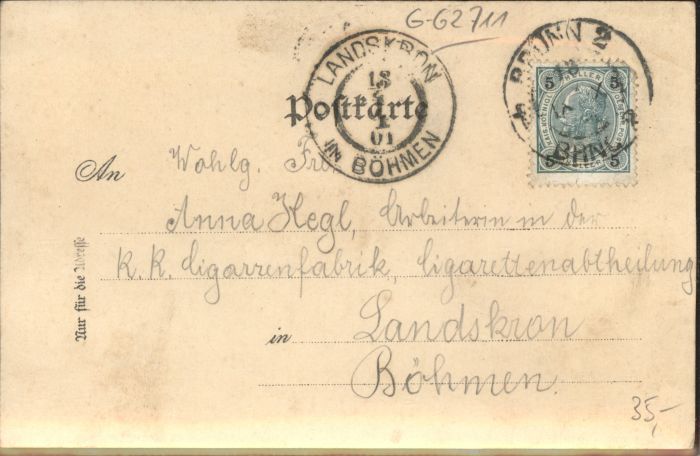 G-G2711
LANDSKRON
18
1
01
IN BÖHMEN
BRÜNN 2
5 HELLER 5
5 HELLER 5
BRNO
Postkarte
An
Wohlg. Frl.
Anna Hegl, Arbeiterin in der
K. K. Cigarrenfabrik, Cigarettenabtheilung
in Landskron
Böhmen.
Nur für die Adresse
35,-